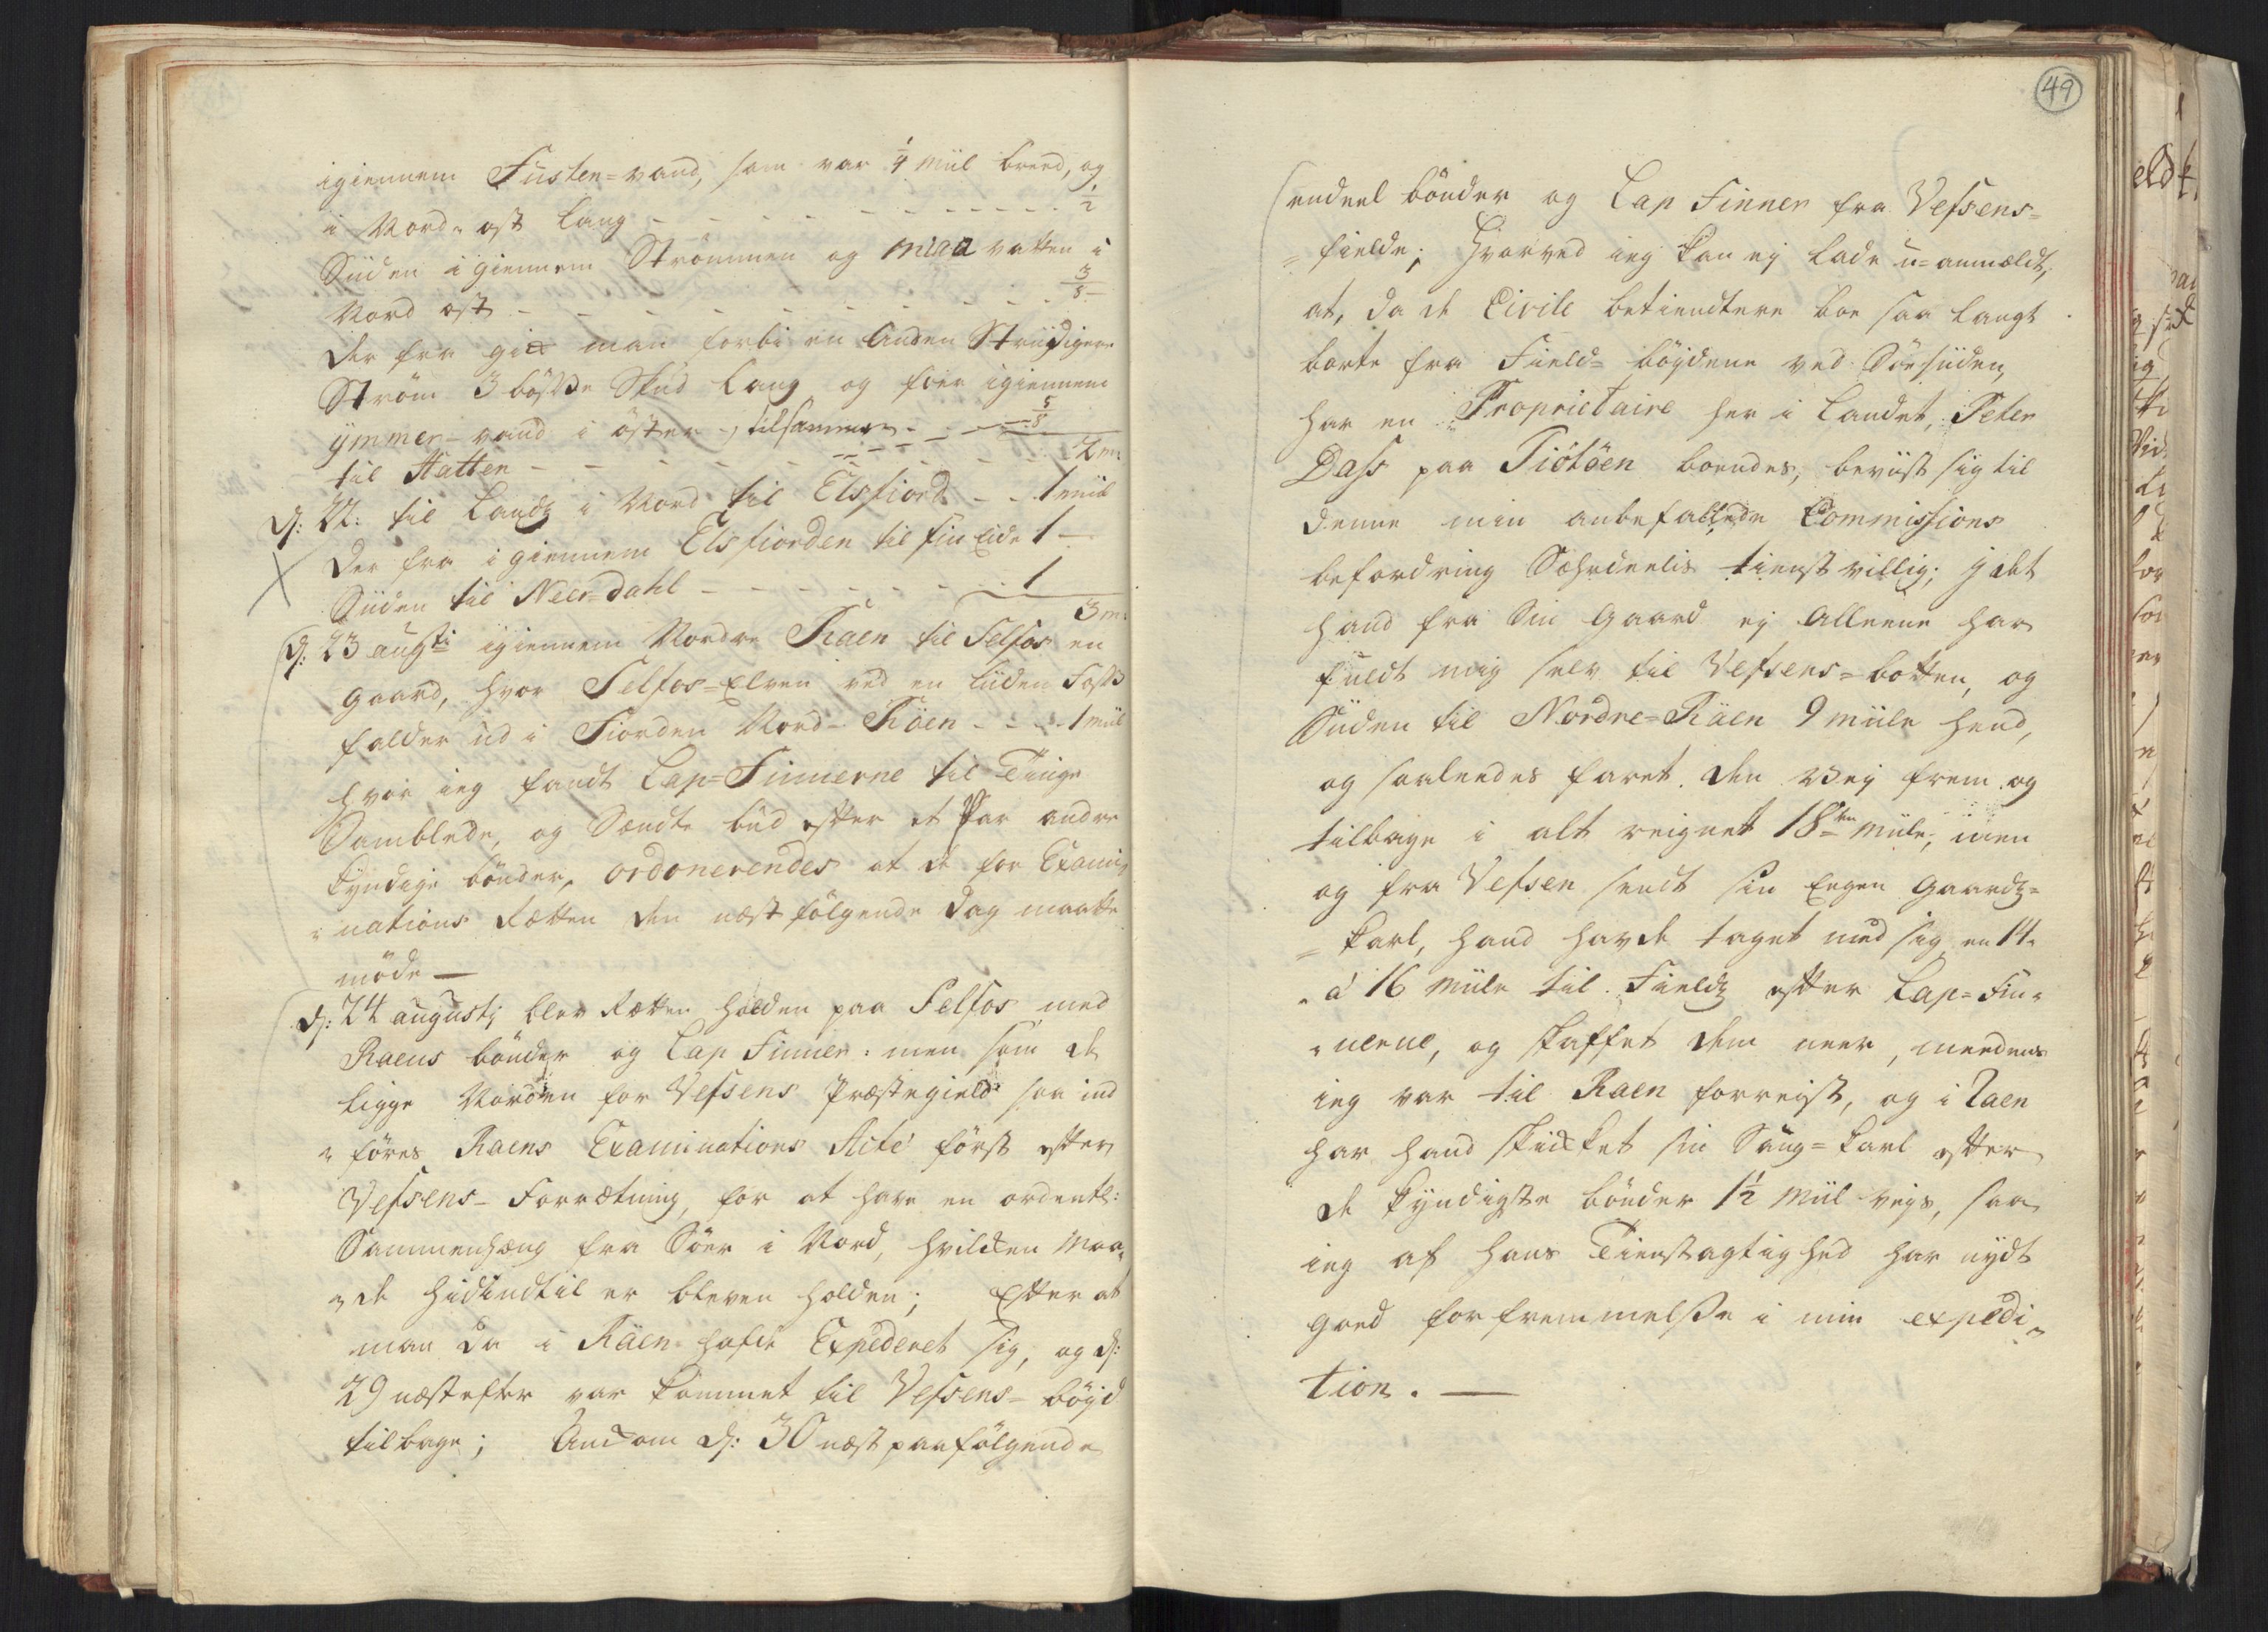 igiennem Fusten=vand, som var 1/4 miil breed, og
i Nord-ost lang - - - - - - - - - - - 1/2
Siiden igiennem Strömmen og Miaavatten i
Nord ost - - - - - - - - - - - 3/8 -
Der fra gik man forbi en anden Striidigere
Ström 3 bösse Skud lang og foer igiennem
ymmer-vand i öster -, tilsammen - - - - 5/8
til Hatten - - - - - - - - - - - 2 m:
d: 22: til Landz i Nord til Elsfiord - - 1 miil
Der fra igiennem Elsfiorden til fin Eide 1 -
Siiden til Neer-dahl - - - - - - - 1
3 m:
d: 23 augsti igiennem Nordre Raen til Selfos en
gaard, hvor Selfos-Elven ved en liiden Foss
falder ud i Fiorden Nord-Räen - - - 1 miil
hvor ieg fandt Lap=Finnerne til Tinge
Samblede, og Sendte bud efter et Par andre
kyndige bönder, ordonerendes at de for Exami-
nations Retten den næst fölgende dag maatte
möde —
d: 24 augusti blev Retten holden paa Selfos med
Raens bönder og Lap Finner: men som de
ligge Norden for Vefsens Præstegield saa ind
föres Raens Examinations Acte först efter
Vefsens-Forrætning, for at have en ordentl:
Sammenhæng fra Söer i Nord, hvilcken Maa-
de hidindtil er bleven holden; Efter at
man da i Räen hafde Expederet sig, og d:
29 næstefter var kommet til Vefsens-böyd
tilbage; Ankom d: 30 næst paafölgende
49
endeel bönder og Lap Finner fra Vefsens=
=fielde; Hvorved ieg kan ey lade u-anmældt,
at, da de Civile betiendtere boe saa langt
borte fra Field=böydene ved Söesiiden,
har en Proprietaire her i Landet, Peter
Dass paa Tiötöen boendes, beviist sig til
denne min anbefallede Commissions
befordring Sæhrdeelis tienstvillig; i det
hand fra Sin gaard ey alleene har
fuldt mig selv til Vefsens=botten, og
Siiden til Nordre=Räen 9 miile hend,
og saaleedes faret den Vey frem og
tilbage i alt reignet 18ten miile, men
og fra Vefsen sendt sin Eegen gaardz=
=karl, hand havde taget med sig en 14.
à 16 miile til Fieldz efter Lap=Fin-
nerne, og skaffet dem neer, meedens
ieg var til Raen forreist, og i Raen
har hand skicket sin Säng=karl efter
de kyndigste bönder 1 1/2 miil veys, saa
ieg af hans Tienstagtighed har nydt
goed forfremmelsse i min expedi-
tion. —